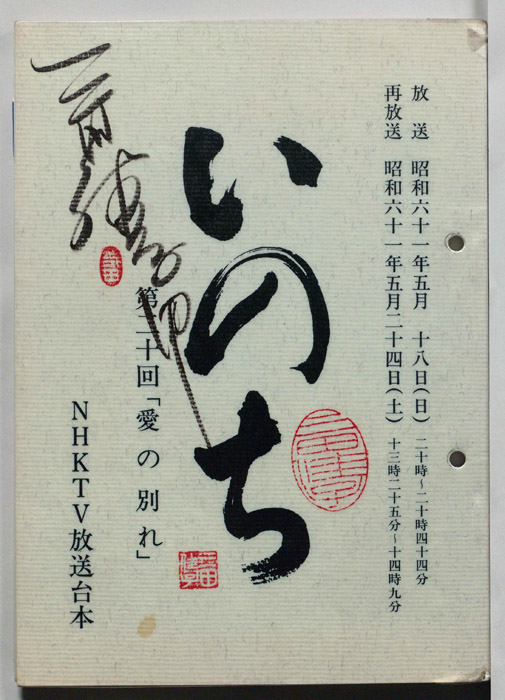 放　送　昭和六十一年五月　十八日(日)　二十時～二十時四十四分
再放送　昭和六十一年五月二十四日(土)　十三時二十五分～十四時九分
いのち
第二十回「愛の別れ」
NHKTV放送台本